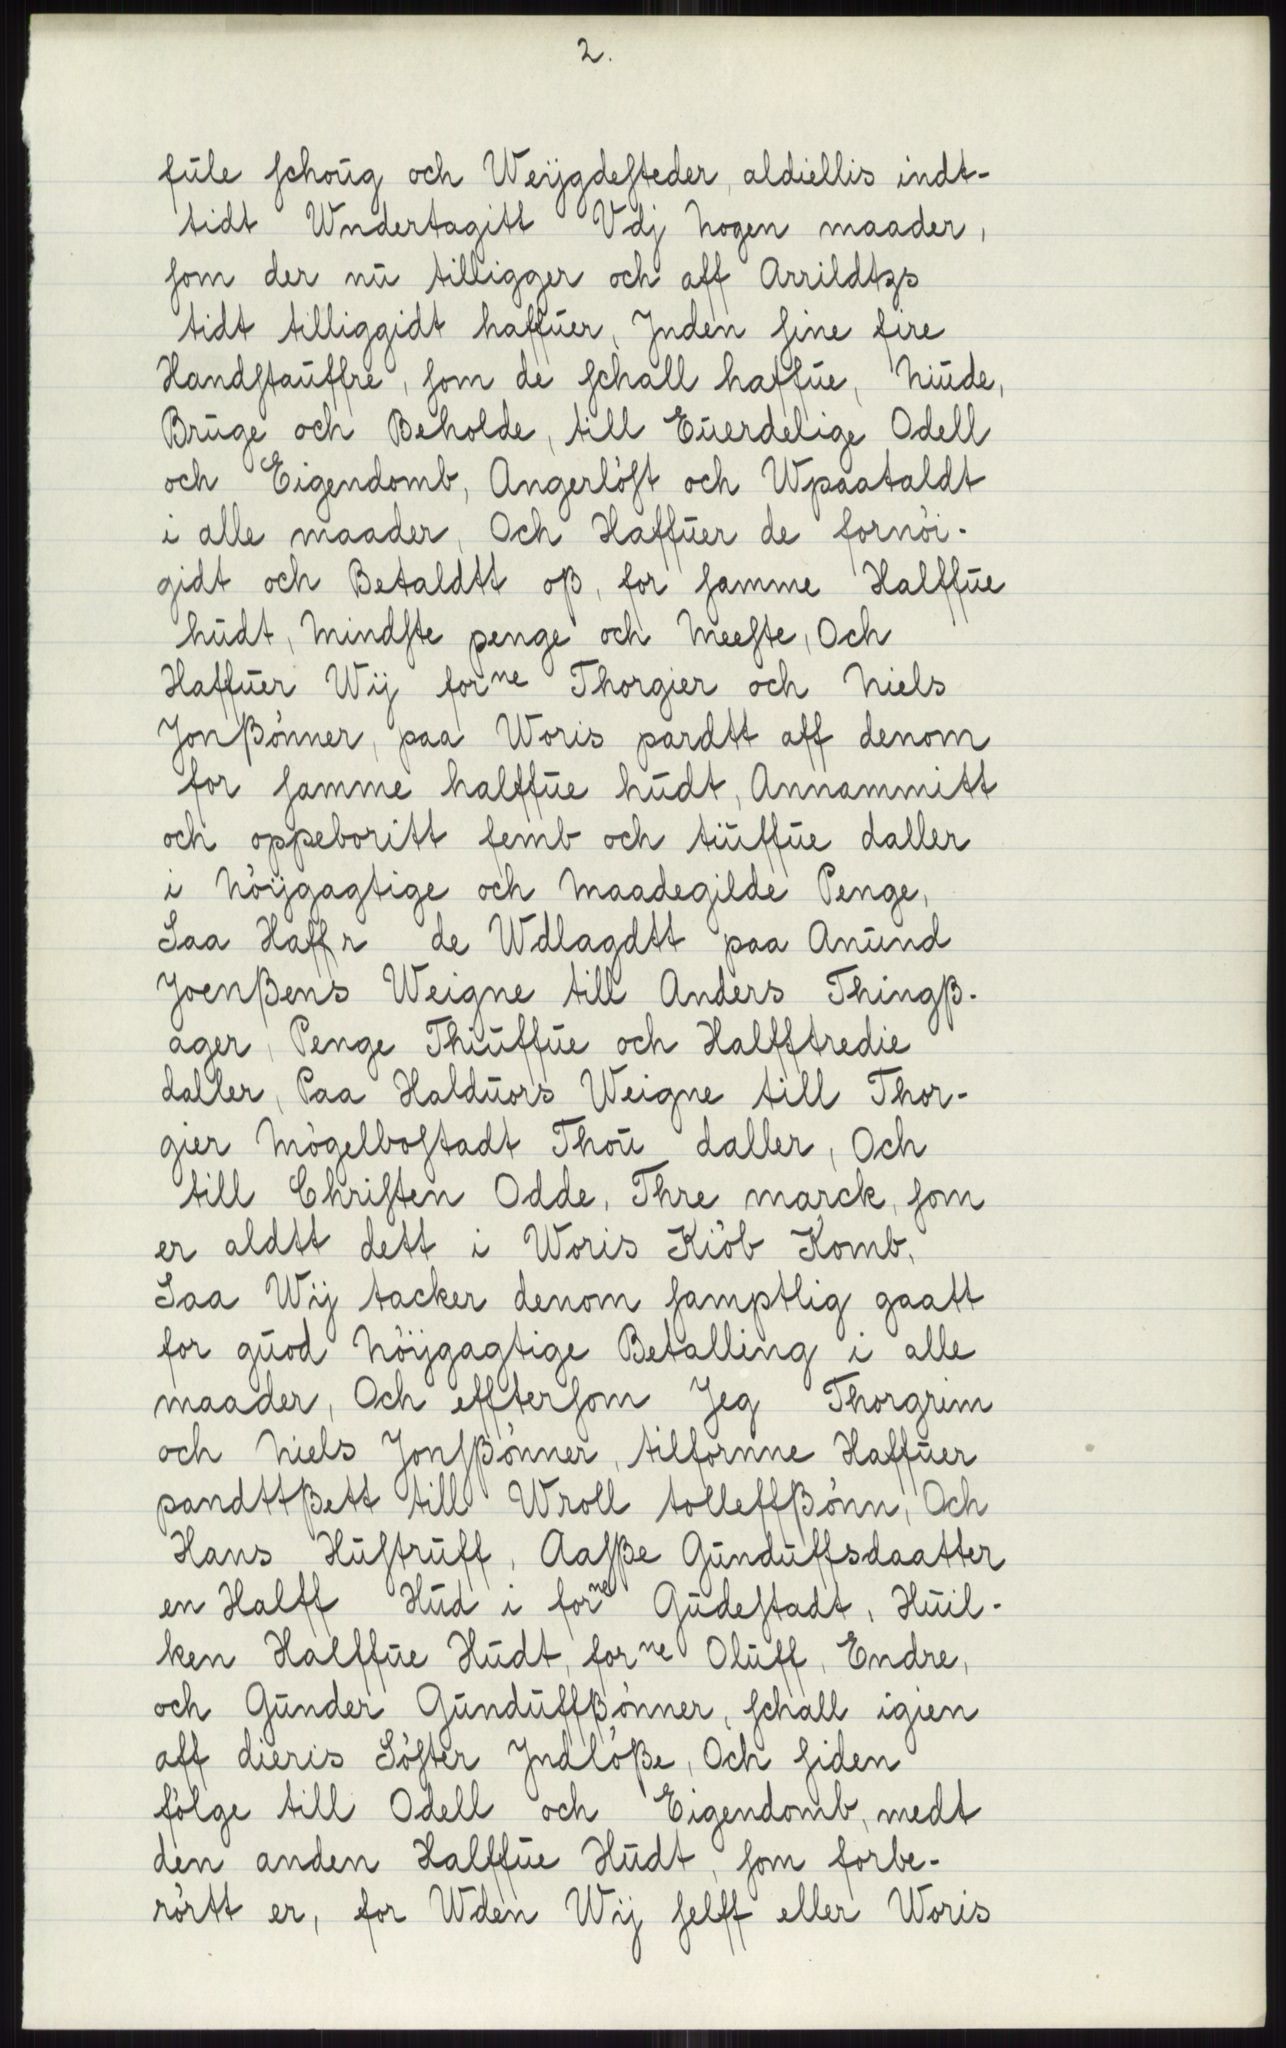 2.
fule schoug och Weÿgdesteder, aldiellis indt-
tidt Wndertagitt Vdj Nogen maader,
som der nu tilligger och aff Arrildtzs
tidt tilliggidt haffuer, Jnden sine fire
Handstauffre, som de schall haffue, Niude,
Bruge och Beholde, till Euerdelige Odell
och Eigendomb, Angerlöst och Wpaataldt
i alle maader, Och Haffuer de fornöi-
gidt och Betaldtt oß, for samme Halffue
hudt, Mindste penge och Meeste, Och
Haffuer Wij forne Thorgier och Niels
Jonßönner, paa Woris pardtt aff denom
for samme halffue hudt, Annammitt
och oppeboritt femb och tiuffue daller
i Nöÿgagtige och Maadegilde Penge,
Saa Haffr de Wdlagdtt paa Anund
Joenßens Weigne till Anders Thingß-
ager, Penge Thiuffue och Halfftredie
daller, Paa Halduors Weigne till Thor-
gier Mögelbostadt Thou daller, Och
till Christen Odde, Thre marck, som
er aldtt dett i Woris Kiöb Komb,
Saa Wij tacker denom samptlig gaatt
for guod Nöÿgagtige Betalling i alle
maader, Och efftersom Jeg Thorgrim
och Niels Jonsßönner, tilfornne Haffuer
pandttßett till Wroll tolleffßönn, Och
Hans Hustruff, Aasße Gunduffsdaatter
en Halff Hud i forne Gudestadt, Huil-
ken Halffue Hudt, forne Oluff, Endre,
och Gunder Gunduffßönner, schall igien
aff dieris Söster Jndlöße, Och siden
fölge till Odell och Eigendomb, medt
den anden Halffue Hudt, som forbe-
rörtt er, for Wden Wij selff eller Woris